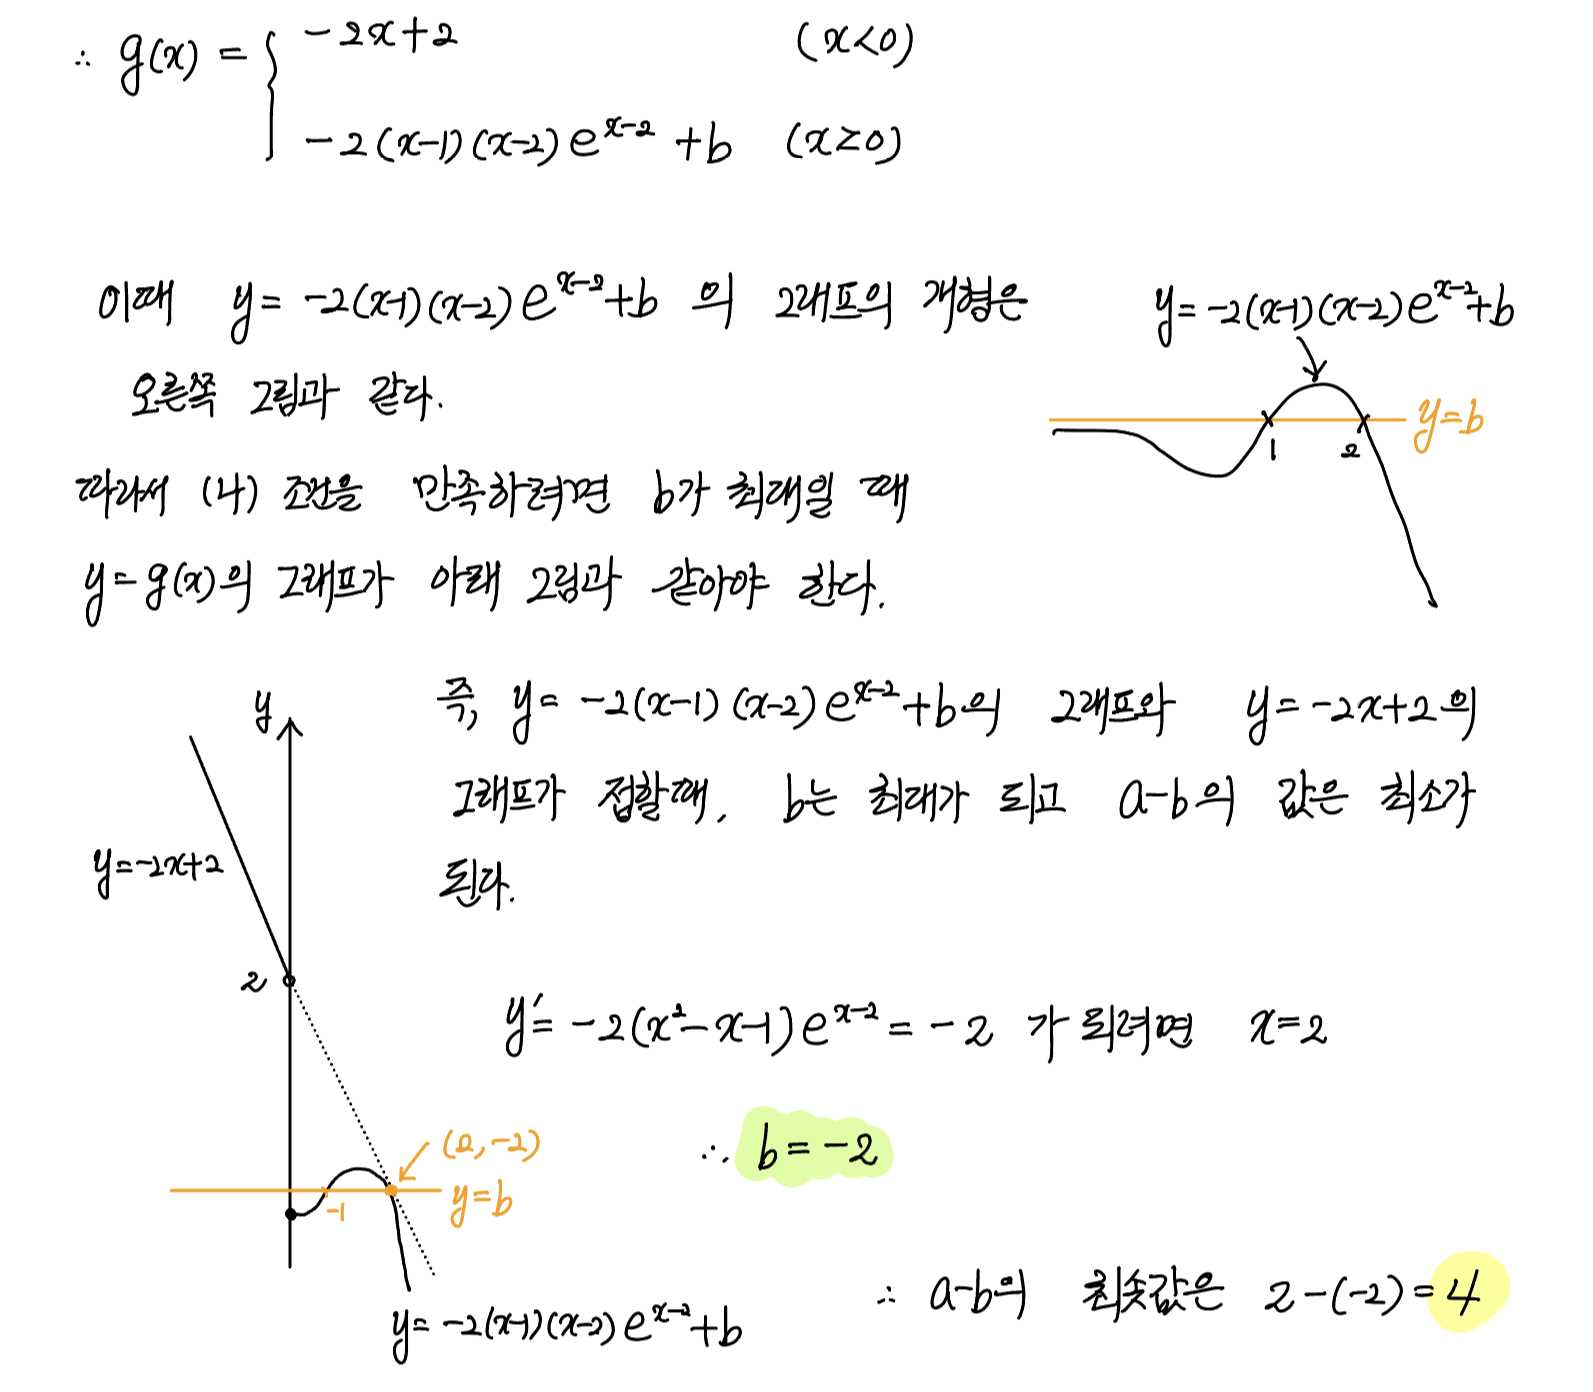 ∴ g(x) = { -2x+2 (x<0)
-2(x-1)(x-2)e^{x-2} +b (x≥0)
이때 y= -2(x-1)(x-2)e^{x-2}+b 의 그래프의 개형은
오른쪽 그림과 같다.
y= -2(x-1)(x-2)e^{x-2}+b
y=b
1 2
따라서 (나) 조건을 만족하려면 b가 최대일 때
y=g(x)의 그래프가 아래 그림과 같아야 한다.
y
y=-2x+2
2
(2,-2)
y=b
-1
y= -2(x-1)(x-2)e^{x-2}+b
즉, y= -2(x-1)(x-2)e^{x-2}+b의 그래프와 y=-2x+2의
그래프가 접할때, b는 최대가 되고 a-b의 값은 최소가
된다.
y'= -2(x²-x-1)e^{x-2} = -2 가 되려면 x=2
∴ b=-2
∴ a-b의 최솟값은 2-(-2)=4